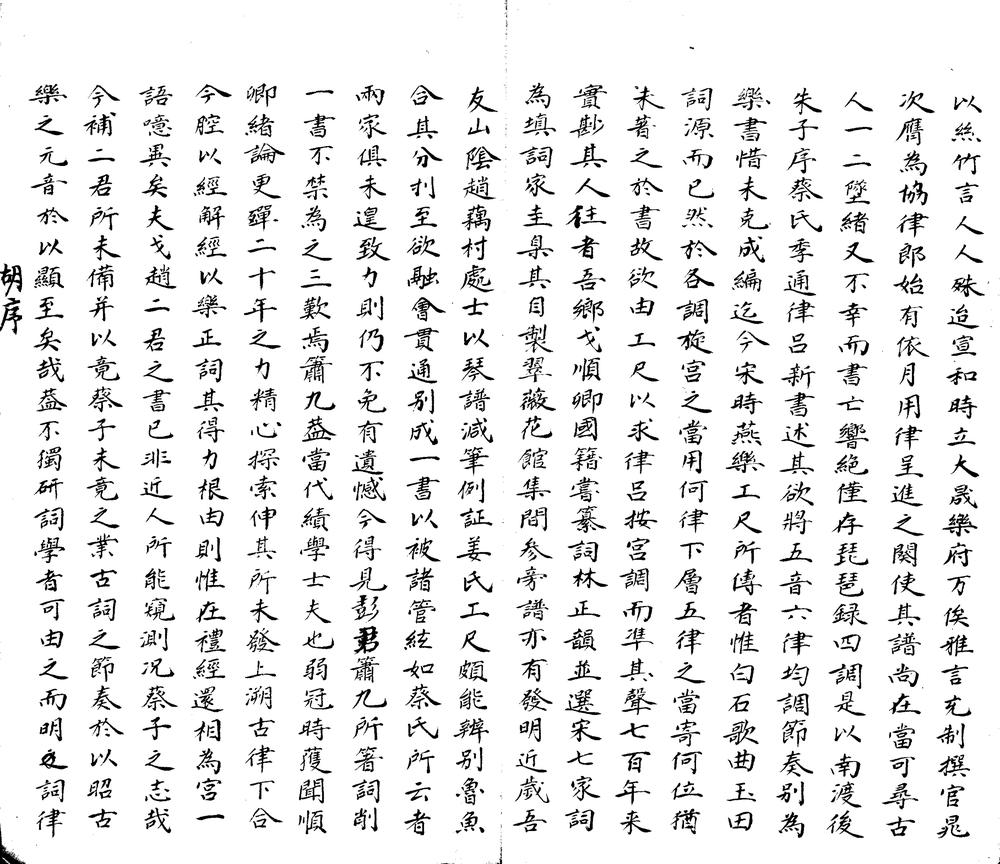 以絲竹言人人殊迨宣和時立大晟樂府万俟雅言充制撰官晁
次膺為協律郎始有依月用律呈進之闋使其譜尚在當可尋古
人一二墜緒又不幸而書亡響絕僅存琵琶録四調是以南渡後
朱子序蔡氏季通律呂新書述其欲將五音六律均調節奏別為
樂書惜未克成編迄今宋時燕樂工尺所傳者惟白石歌曲玉田
詞源而已然於各調旋宮之當用何律下層五律之當寄何位猶
未著之於書故欲由工尺以求律呂按宮調而準其聲七百年来
實尠其人往者吾鄉戈順卿國籍嘗纂詞林正韻並選宋七家詞
為填詞家圭臬其自製翠薇花館集間參旁譜亦有發明近歲吾
友山陰趙藕村處士以琴譜減筆例証姜氏工尺頗能辨別魯魚
合其分刌至欲融會貫通別成一書以被諸管絃如蔡氏所云者
兩家俱未遑致力則仍不免有遺憾今得見彭君簫九所箸詞削
一書不禁為之三歎焉簫九葢當代績學士夫也弱冠時獲聞順
卿緒論更殫二十年之力精心探索伸其所未發上溯古律下合
今腔以經解經以樂正詞其得力根由則惟在禮經還相為宮一
語噫異矣夫戈趙二君之書已非近人所能窺測况蔡子之志哉
今補二君所未備并以竟蔡子未竟之業古詞之節奏於以昭古
樂之元音於以顯至矣哉葢不獨研詞學者可由之而明夫詞律
胡序